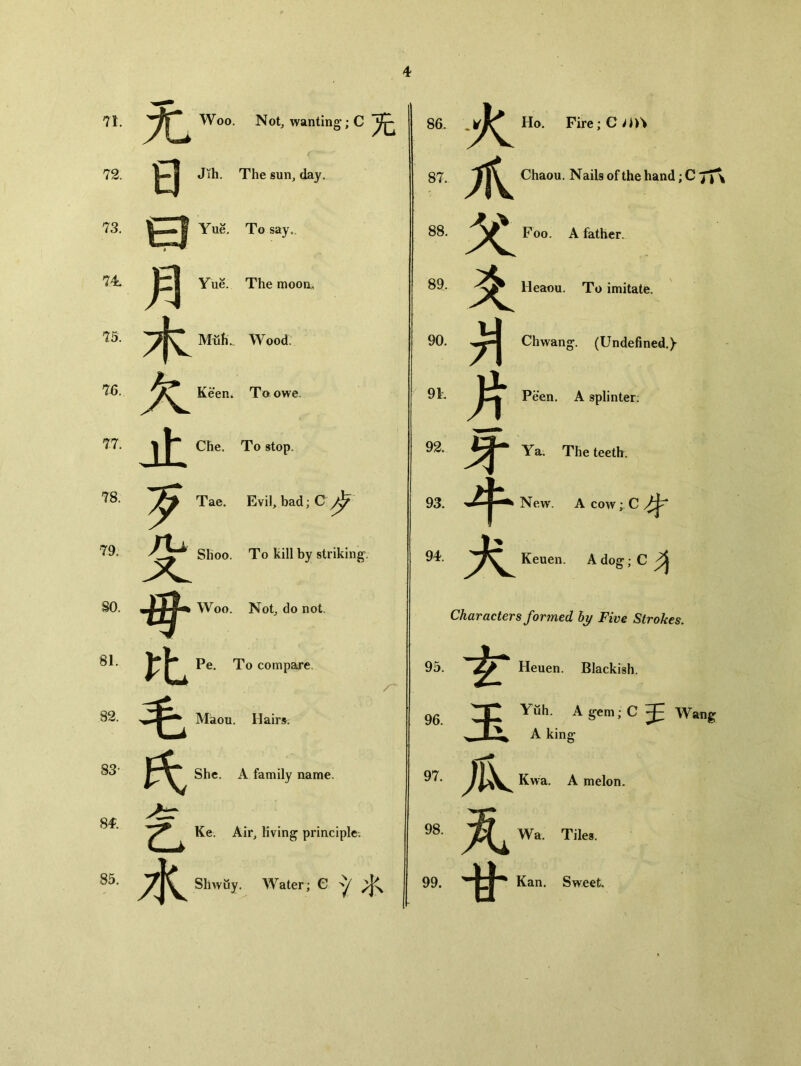 4
71. 无 Woo. Not, wanting; C 旡
72. 日 Jĭh. The sun, day.
73. 曰 Yuĕ. To say.
74. 月 Yuĕ. The moon.
75. 木 Mŭh. Wood.
76. 欠 Këen. To owe.
77. 止 Che. To stop.
78. 歹 Tae. Evil, bad; C 歺
79. 殳 Shoo. To kill by striking.
80. 毋 Woo. Not, do not.
81. 比 Pe. To compare.
82. 毛 Maou. Hairs.
83. 氏 She. A family name.
84. 气 Ke. Air, living principle.
85. 水 Shwŭy. Water; C 氵 氺
86. 火 Ho. Fire; C 灬
87. 爪 Chaou. Nails of the hand; C 爫
88. 父 Foo. A father.
89. 爻 Heaou. To imitate.
90. 爿 Chwang. (Undefined.)
91. 片 Pëen. A splinter.
92. 牙 Ya. The teeth.
93. 牛 New. A cow; C 牜
94. 犬 Keuen. A dog; C 犭
Characters formed by Five Strokes.
95. 玄 Heuen. Blackish.
96. 玉 Yŭh. A gem; C 王 Wang
A king
97. 瓜 Kwa. A melon.
98. 瓦 Wa. Tiles.
99. 甘 Kan. Sweet.